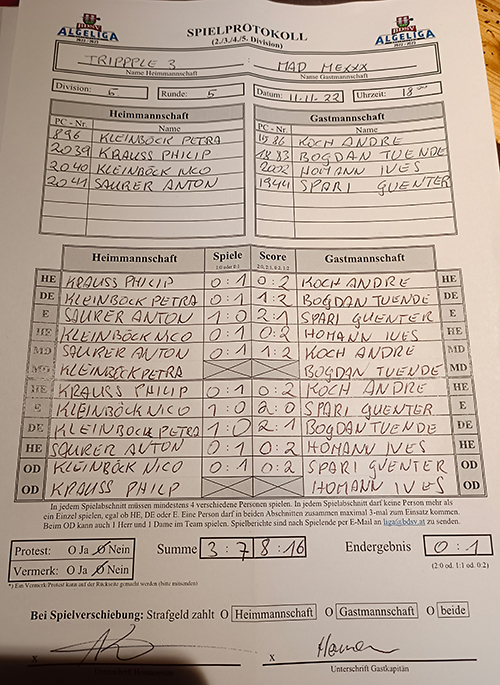 B.D.S.V.
ALGELIGA
2022 / 2023
SPIELPROTOKOLL
(2./3./4./5. Division)
B.D.S.V.
ALGELIGA
2022 / 2023
TRIPPPLE 3 : MAD MEXXX
Name Heimmannschaft Name Gastmannschaft
Division: 5 Runde: 5 Datum: 11.11.22 Uhrzeit: 18
Heimmannschaft Gastmannschaft
PC - Nr. Name PC - Nr. Name
896 KLEINBÖCK PETRA 1986 KOCH ANDRE
2039 KRAUSS PHILIP 1883 BOGDAN TUENDE
2040 KLEINBÖCK NICO 2002 HOMANN IVES
2041 SAURER ANTON 1944 SPARI GUENTER
Heimmannschaft Spiele Score Gastmannschaft
1:0 oder 0:1 2:0, 2:1, 0:2, 1:2
HE KRAUSS PHILIP 0:1 0:2 KOCH ANDRE HE
DE KLEINBÖCK PETRA 0:1 1:2 BOGDAN TUENDE DE
E SAURER ANTON 1:0 2:1 SPARI GUENTER E
HE KLEINBÖCK NICO 0:1 0:2 HOMANN IVES HE
MD SAURER ANTON 0:1 1:2 KOCH ANDRE MD
MD KLEINBÖCK PETRA BOGDAN TUENDE MD
HE KRAUSS PHILIP 0:1 0:2 KOCH ANDRE HE
E KLEINBÖCK NICO 1:0 2:0 SPARI GUENTER E
DE KLEINBÖCK PETRA 1:0 2:1 BOGDAN TUENDE DE
HE SAURER ANTON 0:1 0:2 HOMANN IVES HE
OD KLEINBÖCK NICO 0:1 0:2 SPARI GUENTER OD
OD KRAUSS PHILP HOMANN IVES OD
In jedem Spielabschnitt müssen mindestens 4 verschiedene Personen spielen. In jedem Spielabschnitt darf keine Person mehr als
ein Einzel spielen, egal ob HE, DE oder E. Eine Person darf in beiden Abschnitten zusammen maximal 3-mal zum Einsatz kommen.
Beim OD kann auch 1 Herr und 1 Dame im Team spielen. Spielberichte sind nach Spielende per E-Mail an liga@bdsv.at zu senden.
Protest: O Ja O Nein Summe 3:7 8:16 Endergebnis 0:1
Vermerk: O Ja O Nein (2:0 od. 1:1 od. 0:2)
*) Ein Vermerk/Protest kann auf der Rückseite gemacht werden (bitte mitsenden)
Bei Spielverschiebung: Strafgeld zahlt O Heimmannschaft O Gastmannschaft O beide
x x Homan
Unterschrift Heimkapitän Unterschrift Gastkapitän